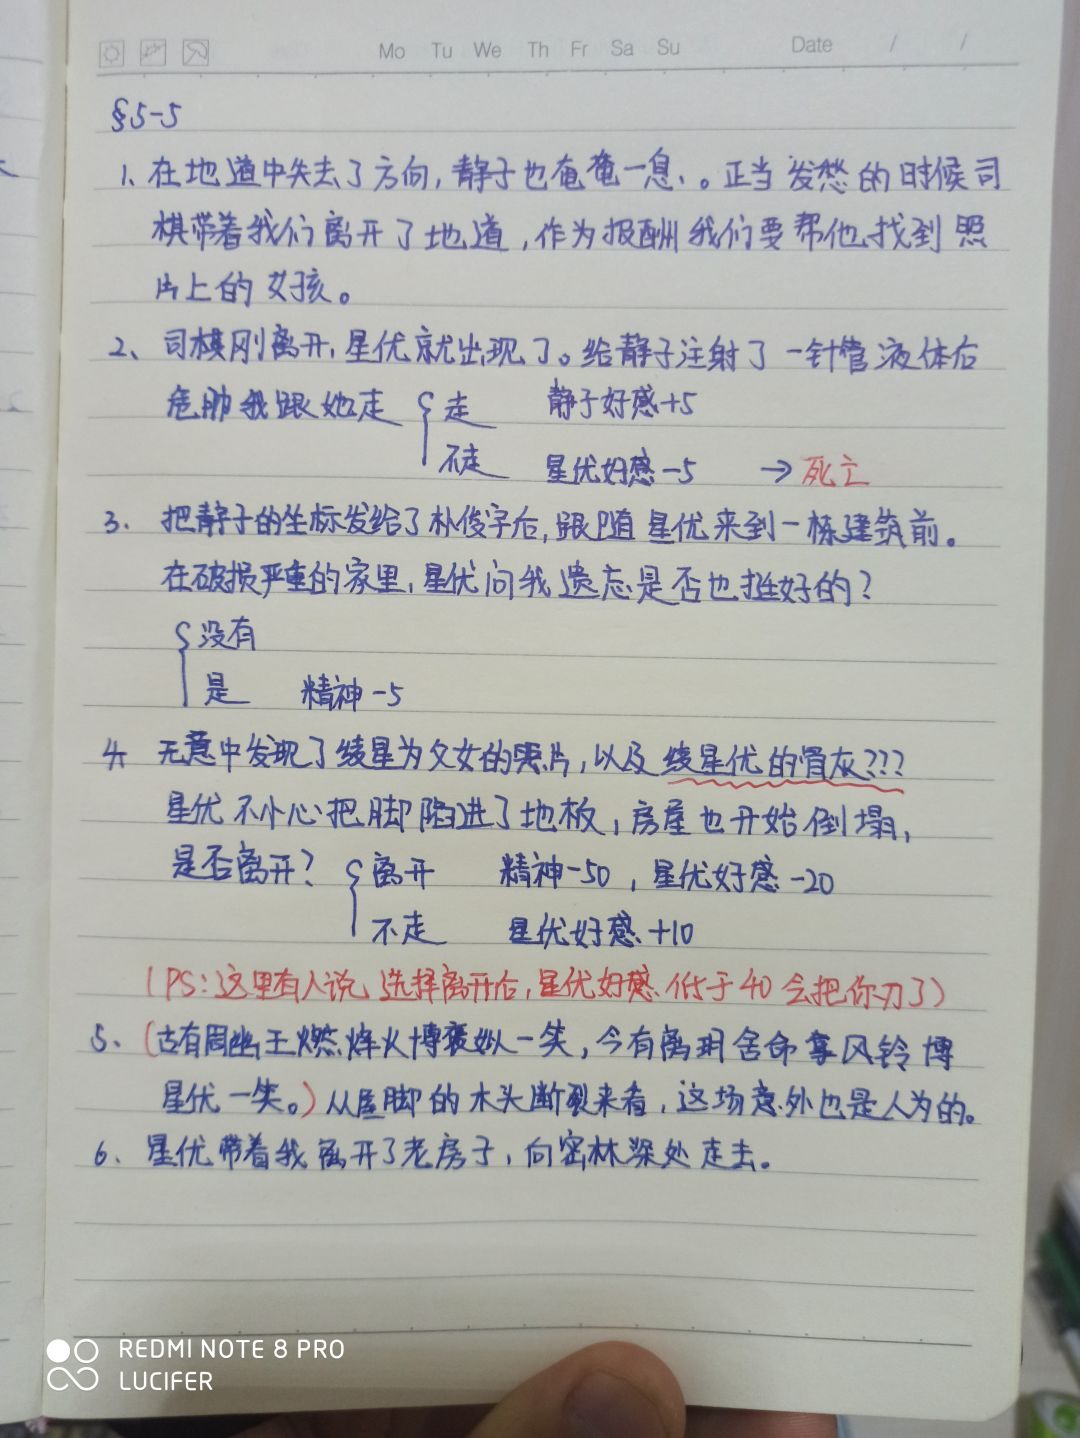 Mo Tu We Th Fr Sa Su Date / /
§5-5
1、在地道中失去了方向，静子也奄奄一息、。正当发愁的时候司
棋带着我们离开了地道，作为报酬我们要帮他找到照
片上的女孩。
2、司棋刚离开，星优就出现了。给静子注射了一针管液体后
危胁我跟她走 走 静子好感+5
不走 星优好感-5 →死亡
3、把静子的坐标发给了朴俊宇后，跟随星优来到一栋建筑前。
在破损严重的家里，星优问我遗忘是否也挺好的？
没有
是 精神-5
4 无意中发现了绫星为父女的照片，以及绫星优的骨灰???
星优不小心把脚陷进了地板，房屋也开始倒塌，
是否离开？ 离开 精神-50，星优好感-20
不走 星优好感+10
(PS：这里有人说，选择离开后，星优好感低于40会把你刀了)
5、(古有周幽王燃烽火博褒姒一笑，今有离玥舍命拿风铃博
星优一笑。)从垫脚的木头断裂来看，这场意外也是人为的。
6、星优带着我离开了老房子，向密林深处走去。
REDMI NOTE 8 PRO
LUCIFER